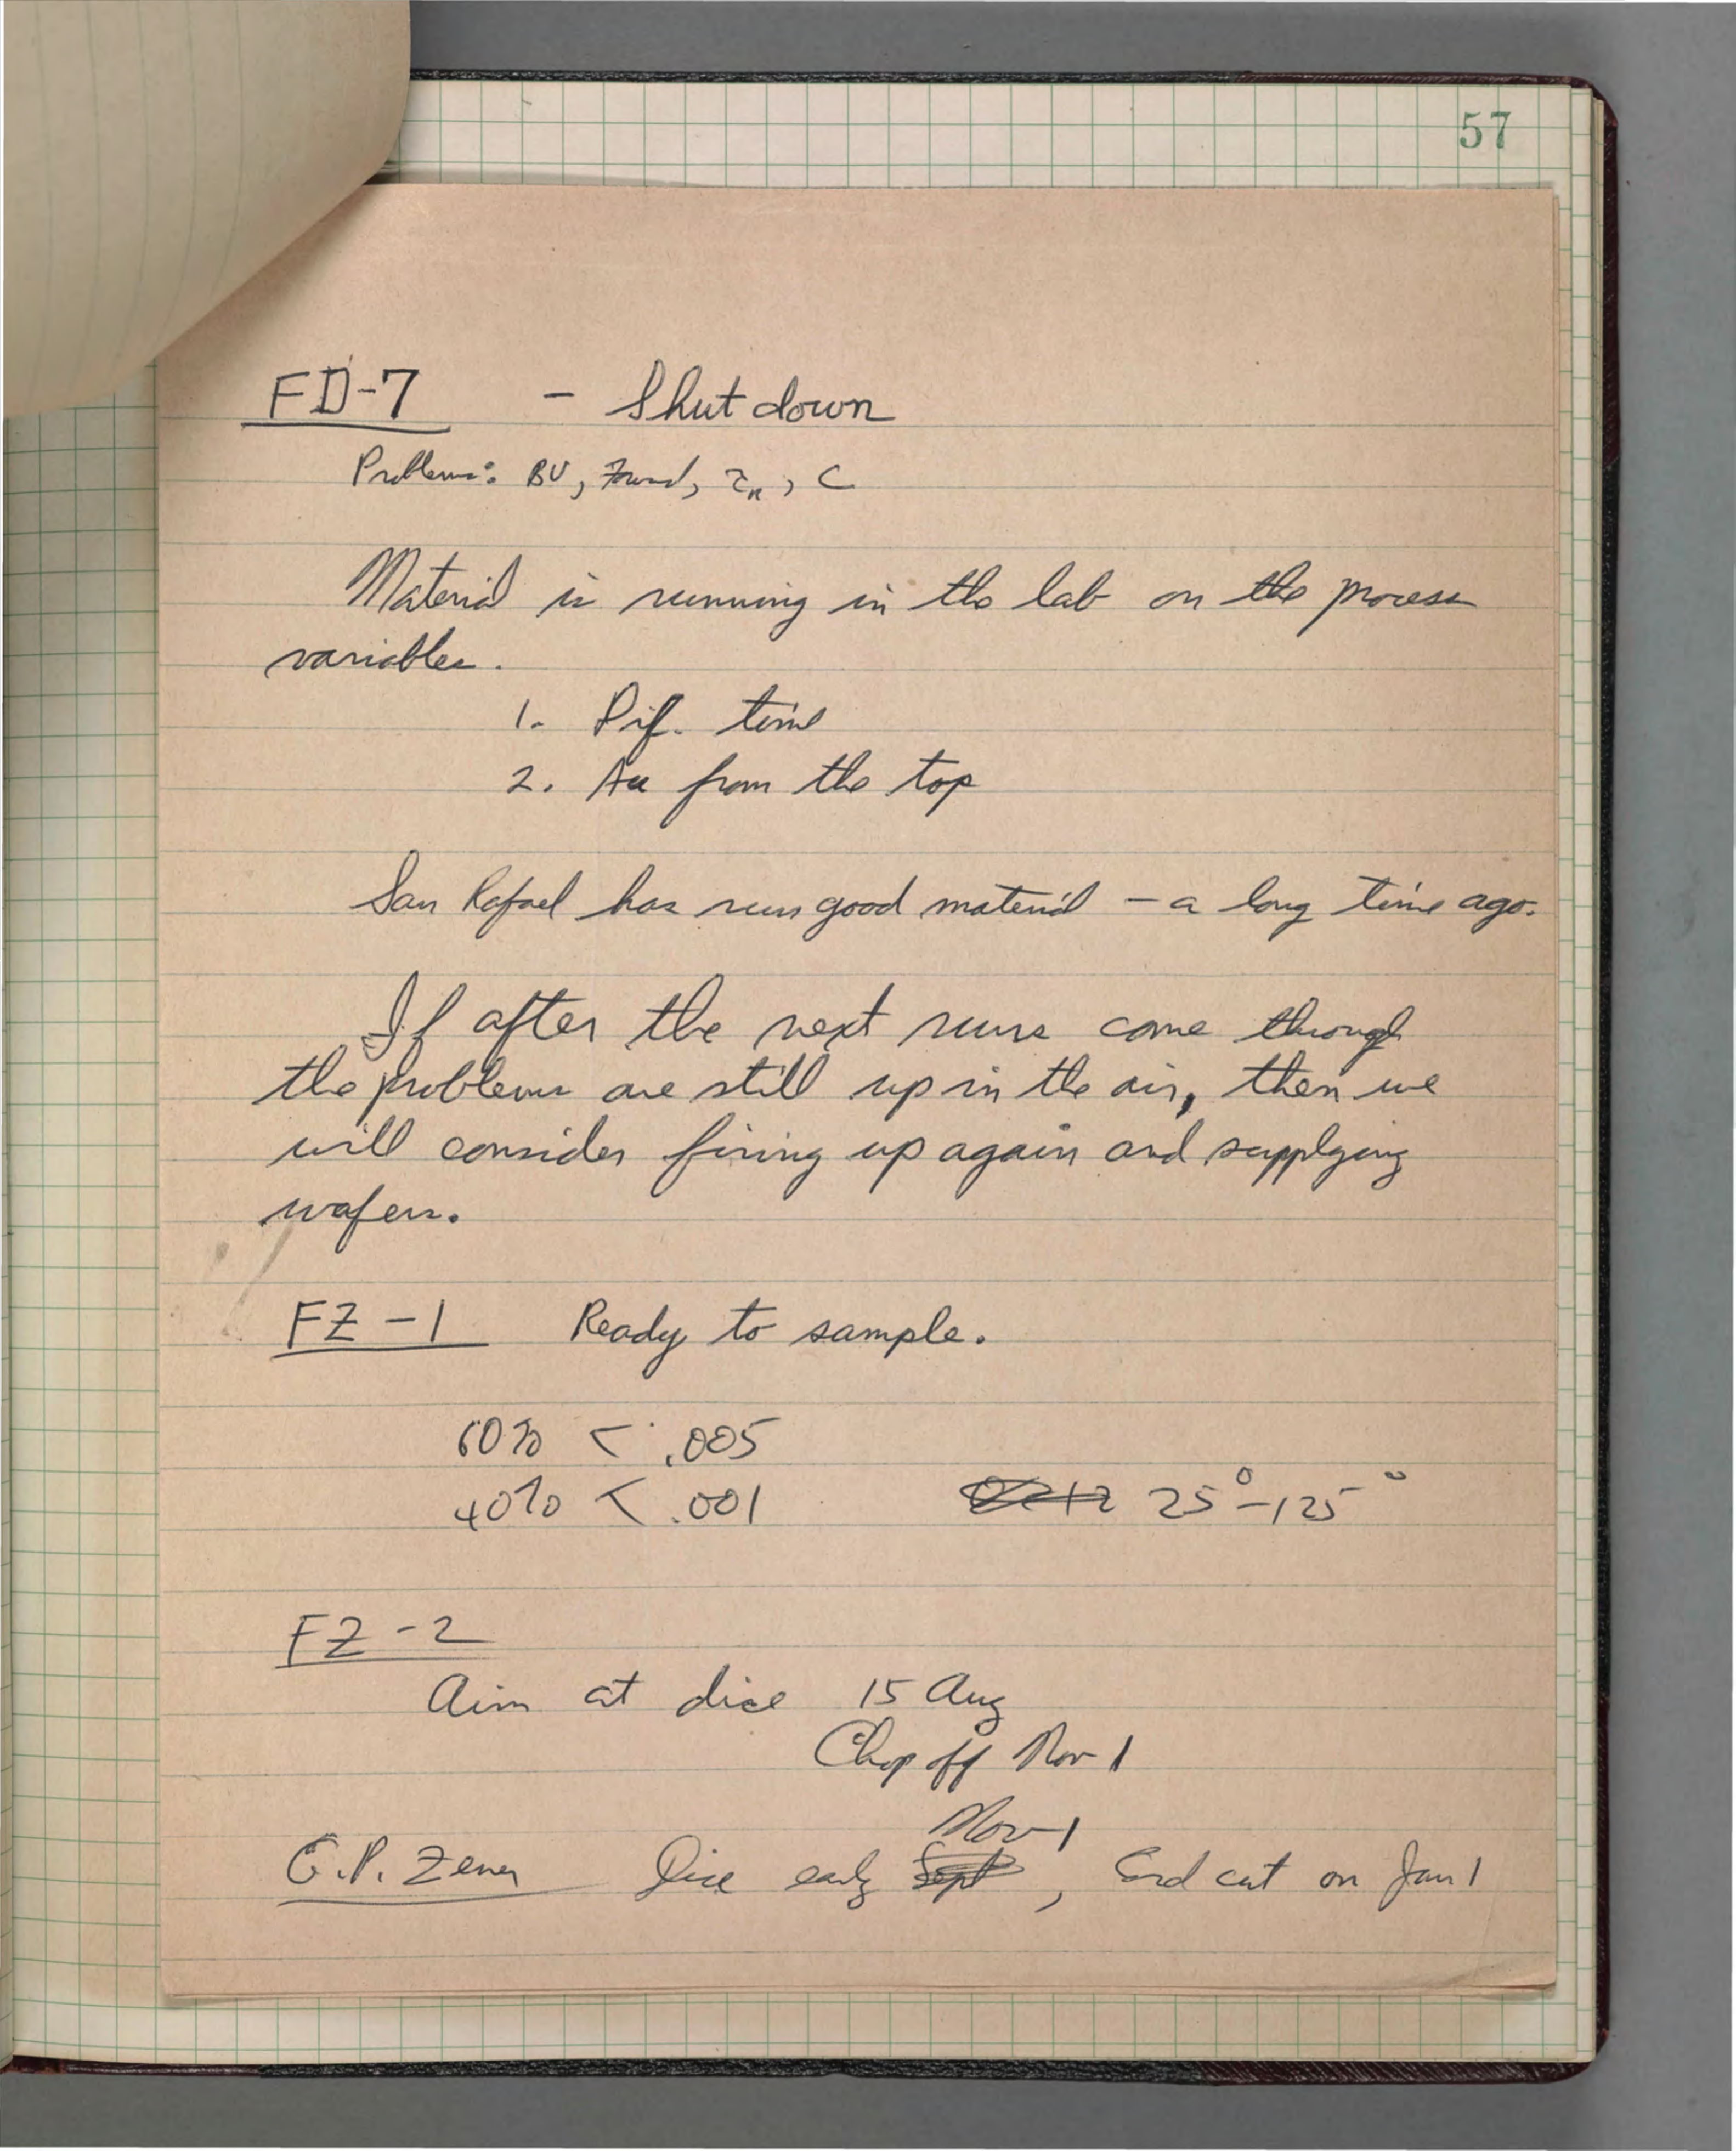 57
FD-7 - Shut down
Problems: BV, Forward, τn, C
Material is running in the lab on the process
variables.
1. Dif. time
2. Au from the top
San Rafael has run good material - a long time ago.
If after the next runs come through
the problems are still up in the air, then we
will consider firing up again and supplying
wafers.
FZ-1 Ready to sample.
60% < .005
40% < .001 25°-125°
FZ-2
Aim at dice 15 Aug
Chop off Nov 1
Nov 1
G.P. Zener Dice early Sept, End cut on Jan 1